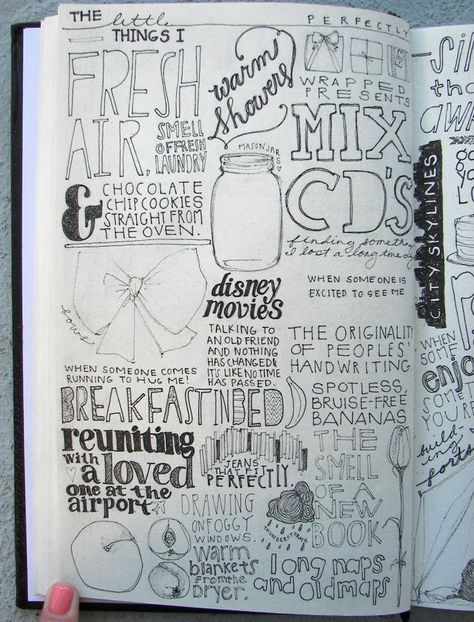 THE little
THINGS I
FRESH
AIR,
SMELL
OF FRESH
LAUNDRY
& CHOCOLATE
CHIP COOKIES
STRAIGHT FROM
THE OVEN.
warm
showers
MASON JARS
PERFECTLY
WRAPPED
PRESENTS
MIX
CD'S
finding something
I lost a long time ago
bows
disney
movies
WHEN SOMEONE IS
EXCITED TO SEE ME
TALKING TO
AN OLD FRIEND
AND NOTHING
HAS CHANGED &
IT'S LIKE NO TIME
HAS PASSED.
THE ORIGINALITY
OF PEOPLES'
HANDWRITING
WHEN SOMEONE COMES
RUNNING TO HUG ME!
BREAKFAST IN BED
SPOTLESS,
BRUISE-FREE
BANANAS
reuniting
with a loved
one at the
airport
JEANS
THAT FIT
PERFECTLY.
THE
SMELL
OF A
NEW
BOOK
DRAWING
ON FOGGY
WINDOWS.
THUNDERSTORMS
warm
blankets
from the
dryer.
long naps
and old maps
CITY SKYLINES
WHEN
enjoy
build-
ing
forts